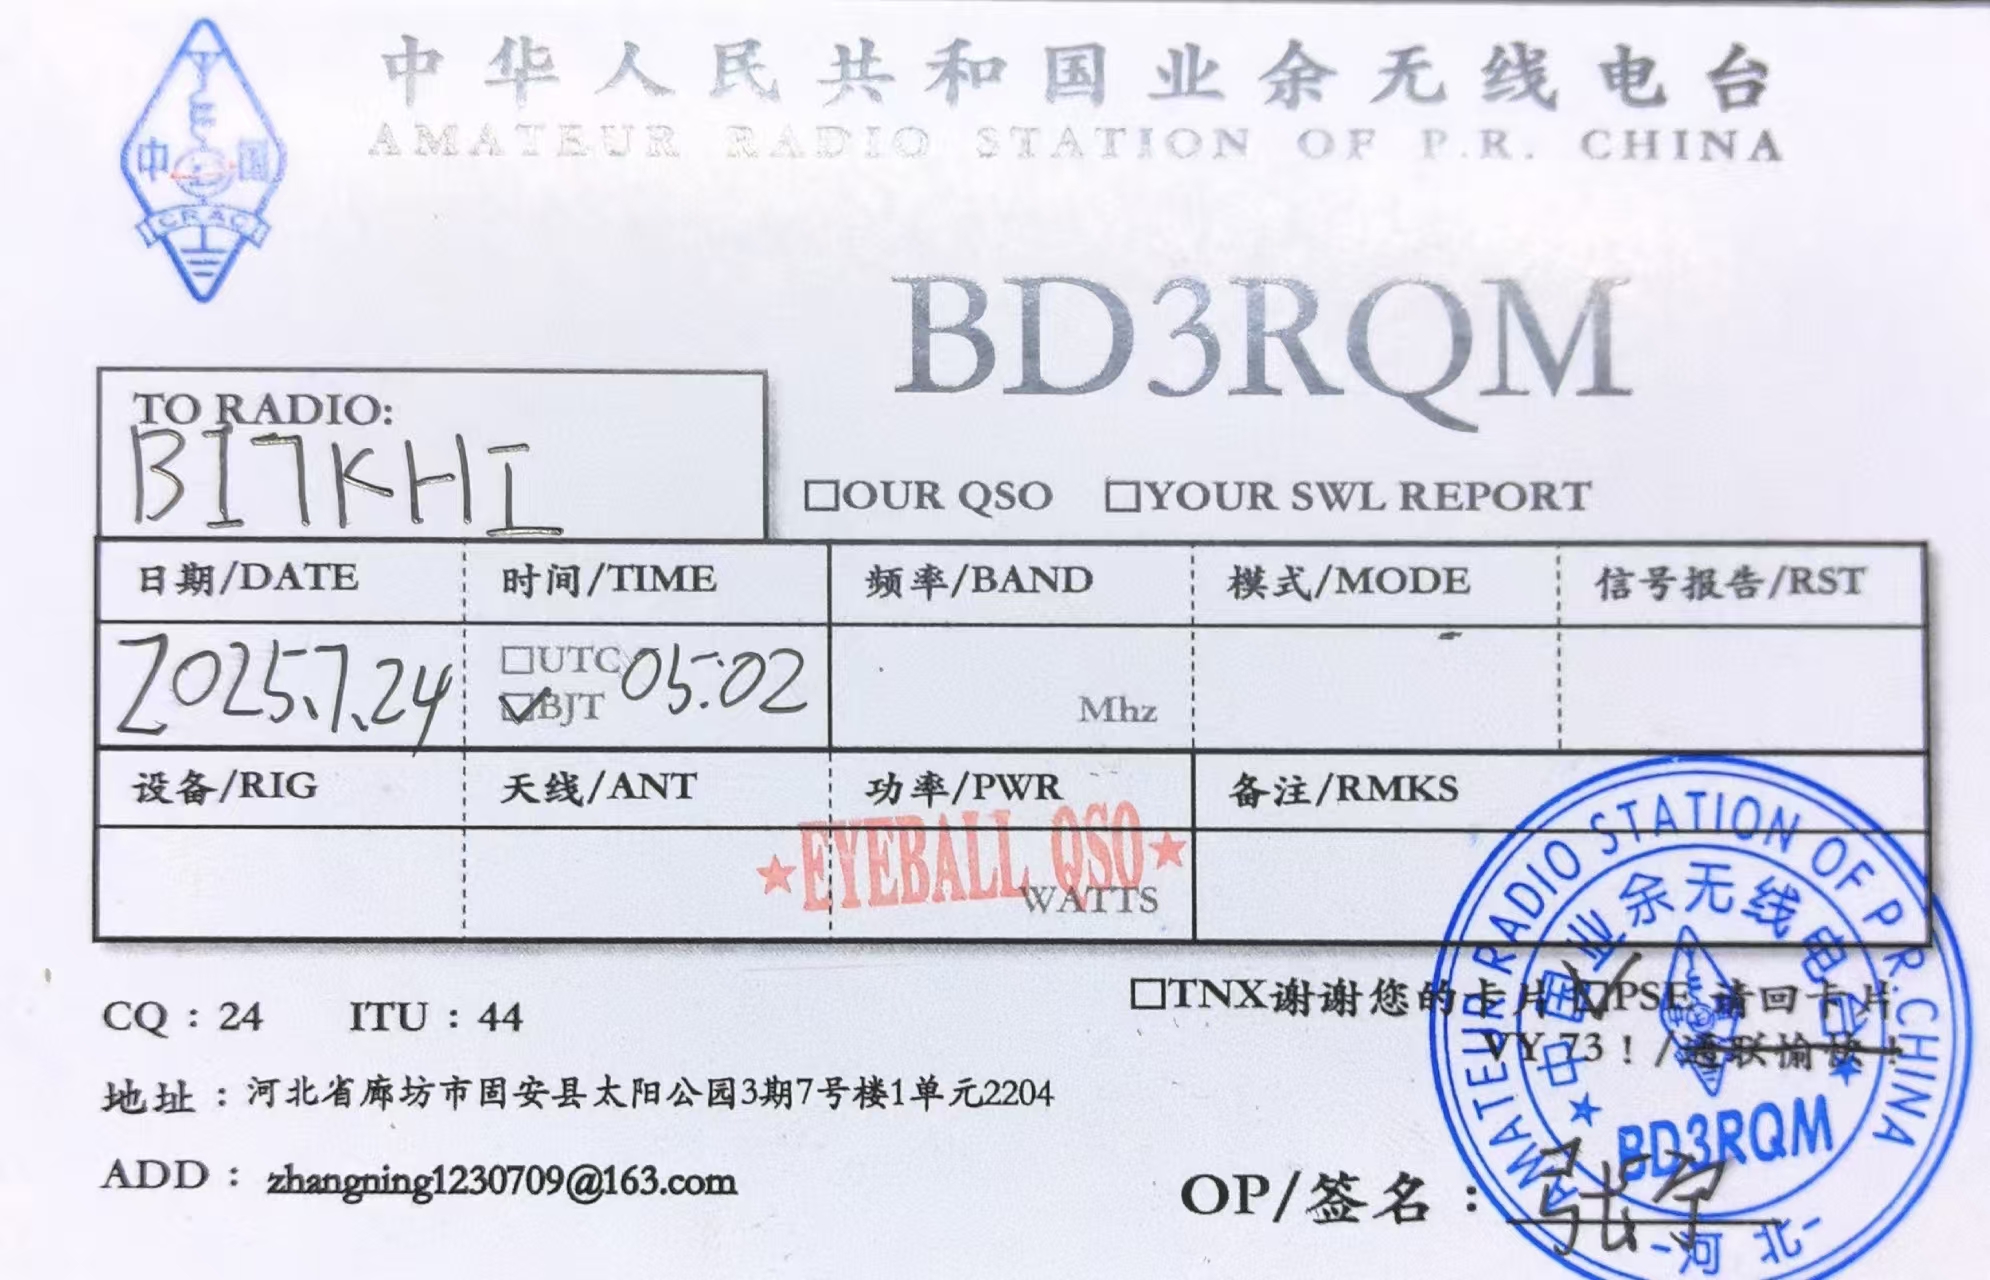 中华人民共和国业余无线电台
AMATEUR RADIO STATION OF P.R. CHINA
中国
CRAC
BD3RQM
TO RADIO:
BI7KHI
□OUR QSO □YOUR SWL REPORT
日期/DATE 时间/TIME 频率/BAND 模式/MODE 信号报告/RST
2025.7.24 □UTC ☑BJT 05:02 Mhz
设备/RIG 天线/ANT 功率/PWR 备注/RMKS
★EYEBALL QSO★
WATTS
CQ：24 ITU：44
□TNX谢谢您的卡片 ☑PSE 请回卡片
VY 73！/通联愉快！
地址：河北省廊坊市固安县太阳公园3期7号楼1单元2204
ADD：zhangning1230709@163.com
OP/签名：张宁
AMATEUR RADIO STATION OF P.R.CHINA
★中国业余无线电台★
BD3RQM
-河北-